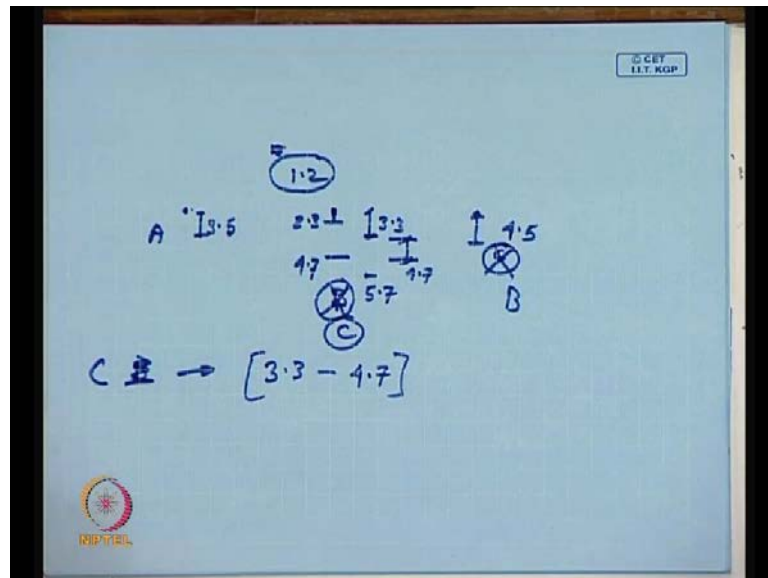 © CET
I.I.T. KGP
1.2
A 3.5 3.3 3.3 4.5
4.7 4.7
5.7 B
C
C → [3.3 - 4.7]
NPTEL